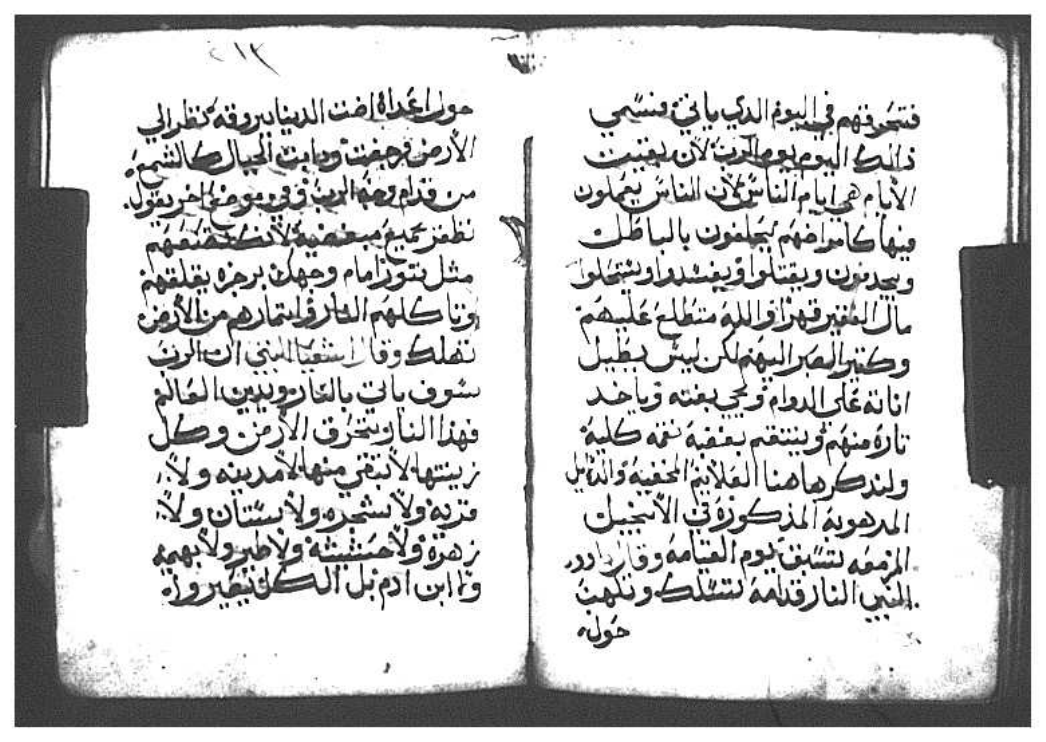 فتحرقهم في اليوم الدي ياتي فنسمي
دالك اليوم يوم الرب لان بقيت
الايام هي ايام الناس لان الناس يعملون
فيها كامراضهم يحلفون بالباطل
ويجدفون ويقتلوا ويفسدوا ويستحلوا
مال الفقير قهرا والله متطلع عليهم
وكتير الصبر اليهم لكن ليس يطيل
اناته على الدوام ويجي بغته وياخد
تاره منهم وينتقم بغضبه نقمه كليه
ولندكر هاهنا العلانيه المخفيه والدلايل
المرهوبه المذكوره في الانجيل
المزمعه تسبق يوم القيامه وقال داود
النبي النار قدامه تسلك وتلهب
حوله
٢١٣
حوله اعداه اضت الدنيا بروقه نظر الي
الارض فرجفت ودابت الجبال كالشمع
من قدام وجه الرب وفي موضع اخر يقول
تظفر بجميع مبغضيه لانك تضعهم
مثل تنور امام وجهك برجزه يقلقهم
وتاكلهم النار واتمارهم من الارض
تهلك وقال اشعيا النبي ان الرب
سوف ياتي بالنار ويدين العالم
فهذا النار يتحرق الارض وكل
زينتها لا تبقي منها لا مدينه ولا
قريه ولا شجره ولا بستان ولا
زهره ولا حشيشه ولا طير ولا بهيمه
ولا ابن ادم بل الكل تصير واه